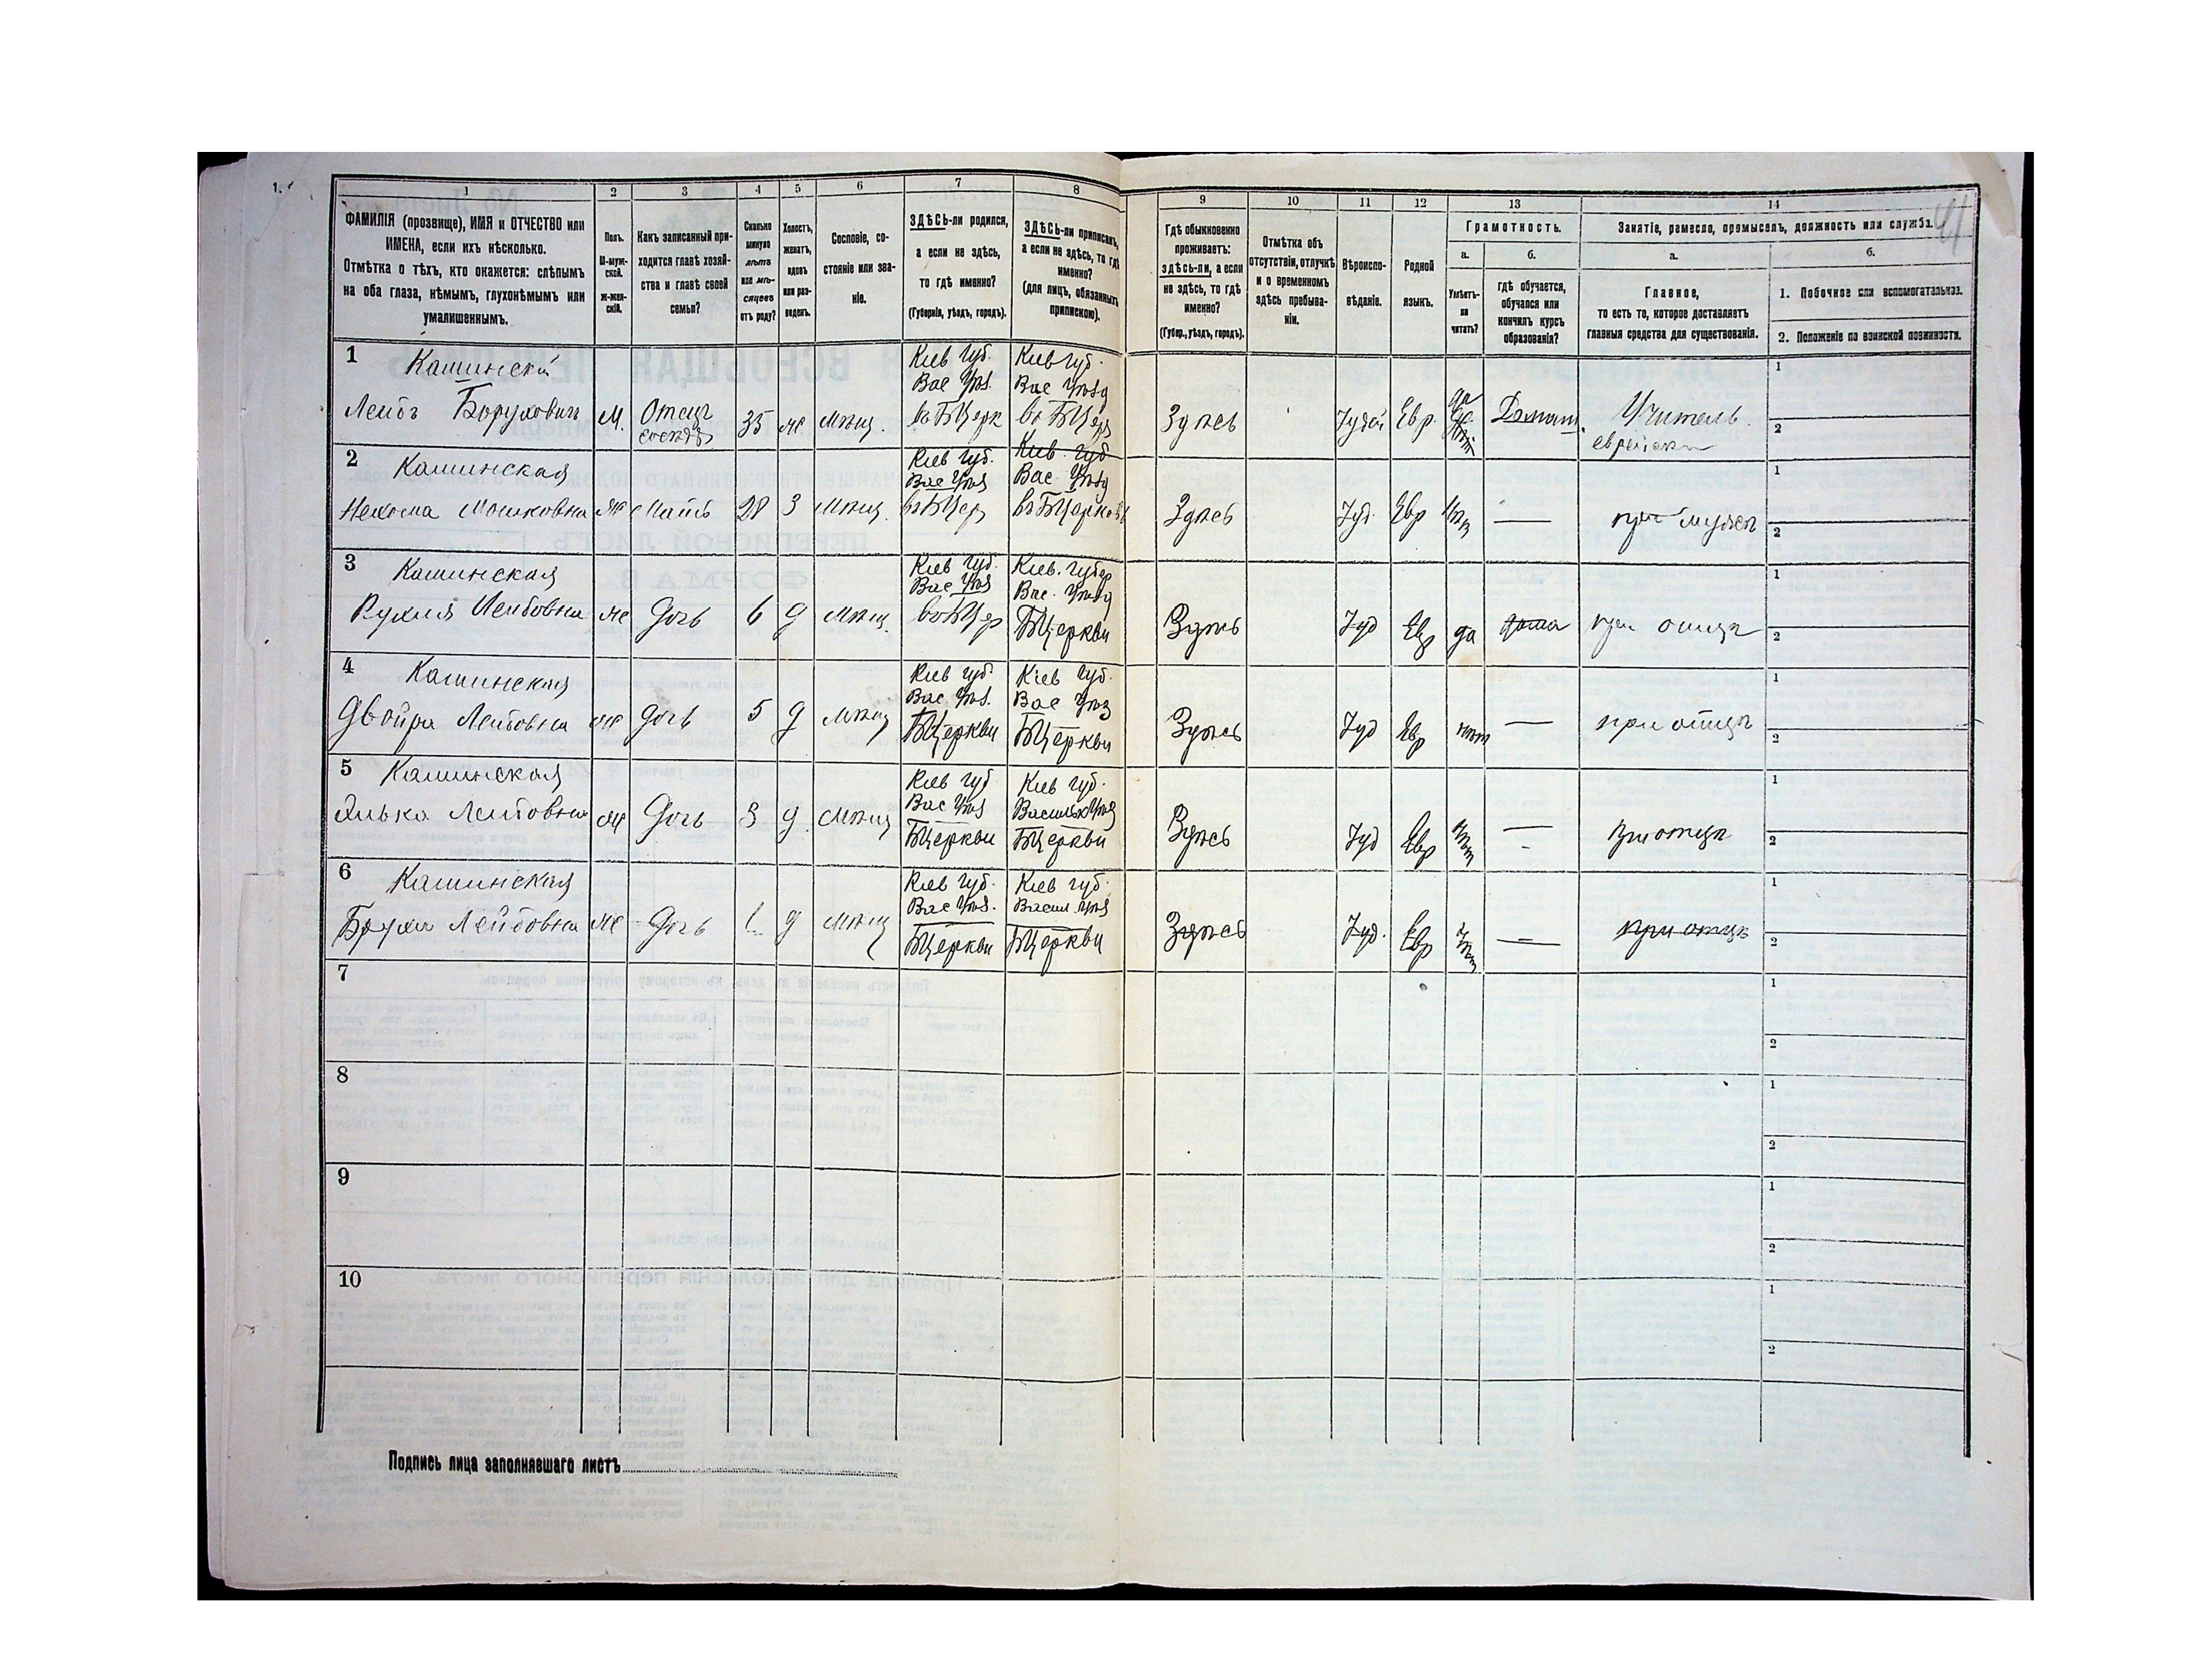 1 2 3 4 5 6 7 8 9 10 11 12 13 14
ФАМИЛІЯ (прозвище), ИМЯ и ОТЧЕСТВО или
ИМЕНА, если ихъ нѣсколько.
Отмѣтка о тѣхъ, кто окажется: слѣпымъ
на оба глаза, нѣмымъ, глухонѣмымъ или
умалишеннымъ.
Полъ.
М-муж-
ской.
ж-жен-
скій.
Какъ записанный при-
ходится главѣ хозяй-
ства и главѣ своей
семьи?
Сколько
минуло
лѣтъ
или мѣ-
сяцевъ
отъ роду?
Холостъ,
женатъ,
вдовъ
или раз-
веденъ.
Сословіе, со-
стояніе или зва-
ніе.
ЗДѢСЬ-ли родился,
а если не здѣсь,
то гдѣ именно?
(Губернія, уѣздъ, городъ).
ЗДѢСЬ-ли приписанъ,
а если не здѣсь, то гдѣ
именно?
(для лицъ, обязанныхъ
припискою).
Гдѣ обыкновенно
проживаетъ:
здѣсь-ли, а если
не здѣсь, то гдѣ
именно?
(Губер., уѣздъ, городъ).
Отмѣтка объ
отсутствіи, отлучкѣ
и о временномъ
здѣсь пребыва-
ніи.
Вѣроиспо-
вѣданіе.
Родной
языкъ.
Грамотность.
а.
Умѣетъ-
ли
читать?
б.
гдѣ обучается,
обучался или
кончилъ курсъ
образованія?
Занятіе, ремесло, промыселъ, должность или служба.
а.
Главное,
то есть то, которое доставляетъ
главныя средства для существованія.
б.
1. Побочное или вспомогательное.
2. Положеніе по воинской повинности.
1 Кашинскій Кіев Губ. Кіев Губ. 1
Вас Уѣз. Вас Уѣзд
Лейбъ Боруховичъ М. Отецъ 35 ж Мѣщ. въ БЦерк въ БЦерк Здѣсь Іудей Евр. да Домаш. Учитель 2
еврейски
2 Кашинская Кіев Губ. Кіев Губ 1
Вас Уѣз Вас Уѣзд
Нехома Мошковна ж Мать 28 З Мѣщ. въ БЦер въ БЦеркови Здѣсь Іуд. Евр нѣт — при мужѣ 2
3 Кашинская Кіев Губ. Кіев. Губер 1
Вас Уѣз Вас. Уѣзд
Рухля Лейбовна ж Дочь 6 д Мѣщ. въ БЦер БЦеркви Здѣсь Іуд Евр да дома при отцѣ 2
4 Кашинская Кіев Губ. Кіев Губ. 1
Вас Уѣз. Вас Уѣз
Двойра Лейбовна ж дочь 5 д Мѣщ БЦеркви БЦеркви Здѣсь Іуд Евр нѣт — при отцѣ 2
5 Кашинская Кіев Губ Кіев Губ. 1
Вас Уѣз Васильк Уѣз
Лейбовна ж Дочь 3 д. Мѣщ БЦеркви БЦеркви Здѣсь Іуд Евр нѣт — при отцѣ 2
6 Кашинская Кіев Губ. Кіев Губ. 1
Вас Уѣз. Васил Уѣз
Лейбовна ж Дочь 1 д Мѣщ БЦеркви БЦеркви Здѣсь Іуд. Евр нѣт — при отцѣ 2
7 1
2
8 1
2
9 1
2
10 1
2
Подпись лица заполнявшаго листъ